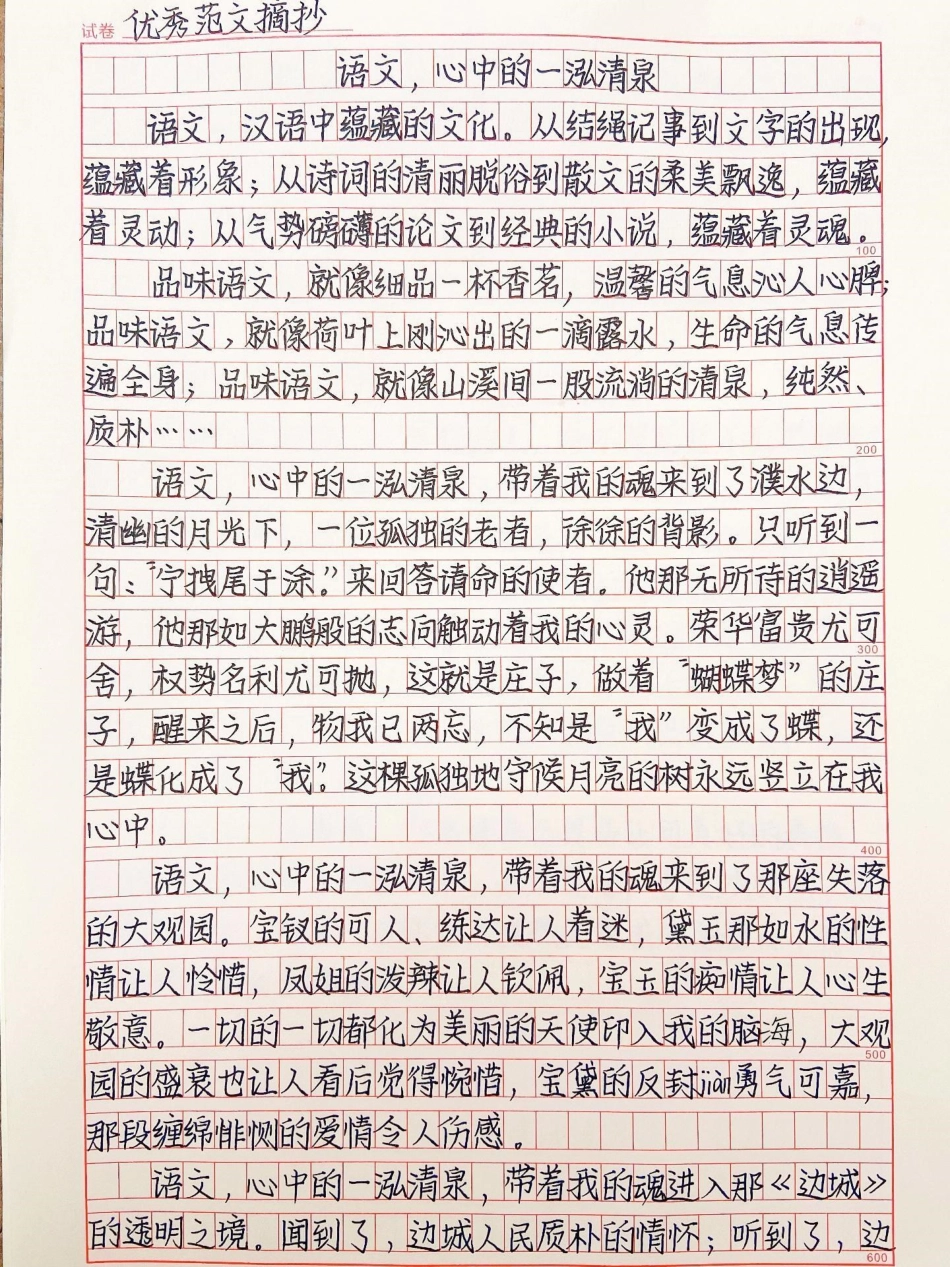 试卷 优秀范文摘抄
语文，心中的一泓清泉
语文，汉语中蕴藏的文化。从结绳记事到文字的出现，
蕴藏着形象；从诗词的清丽脱俗到散文的柔美飘逸，蕴藏
着灵动；从气势磅礴的论文到经典的小说，蕴藏着灵魂。
100
品味语文，就像细品一杯香茗，温馨的气息沁人心脾；
品味语文，就像荷叶上刚沁出的一滴露水，生命的气息传
遍全身；品味语文，就像山溪间一股流淌的清泉，纯然、
质朴……
200
语文，心中的一泓清泉，带着我的魂来到了濮水边，
清幽的月光下，一位孤独的老者，徐徐的背影。只听到一
句：“宁拽尾于涂。”来回答请命的使者。他那无所待的逍遥
游，他那如大鹏般的志向触动着我的心灵。荣华富贵尤可
300
舍，权势名利尤可抛，这就是庄子，做着“蝴蝶梦”的庄
子，醒来之后，物我已两忘，不知是“我”变成了蝶，还
是蝶化成了“我”？这棵孤独地守候月亮的树永远竖立在我
心中。
400
语文，心中的一泓清泉，带着我的魂来到了那座失落
的大观园。宝钗的可人、练达让人着迷，黛玉那如水的性
情让人怜惜，凤姐的泼辣让人钦佩，宝玉的痴情让人心生
敬意。一切的一切都化为美丽的天使印入我的脑海，大观
500
园的盛衰也让人看后觉得惋惜，宝黛的反封jiàn勇气可嘉，
那段缠绵悱恻的爱情令人伤感。
语文，心中的一泓清泉，带着我的魂进入那《边城》
的透明之境。闻到了，边城人民质朴的情怀；听到了，边
600